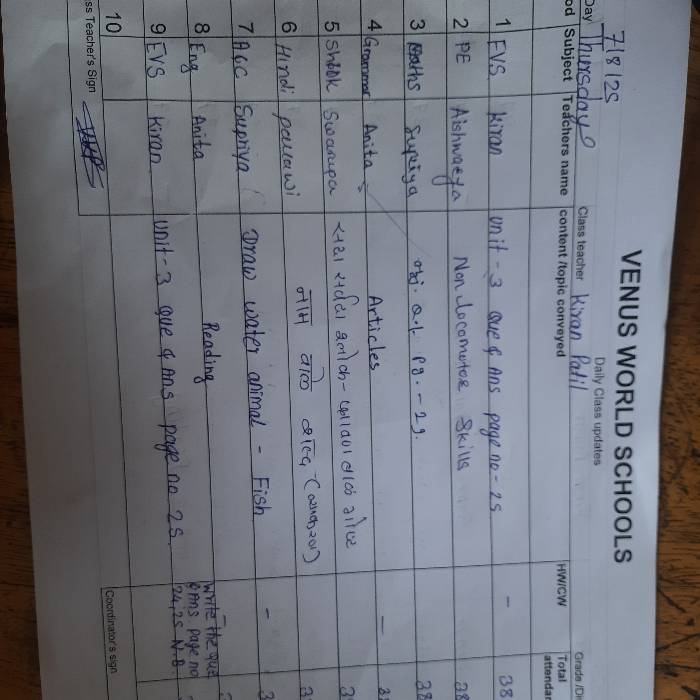 VENUS WORLD SCHOOLS
Daily Class updates
7/8/25
Day Thursday Class teacher Kiran Patil Grade /Di
od Subject Teachers name content /topic conveyed HW/CW Total attenda
1 EVS Kiran Unit - 3 Que & Ans page no - 25 - 38
2 PE Aishwarya Non locomotor Skills 38
3 Maths Supriya Pg. - 29. 38
4 Grammar Anita Articles -
5 Swarupa
6 Hindi Pallawi
7 A&C Supriya Draw water animal - Fish - 3
8 Eng Anita Reading -
9 EVS Kiran Unit - 3 Que & Ans page no 25. Write the que & Ans. page no 24,25 N.B.
10
ss Teacher's Sign Coordinator's sign